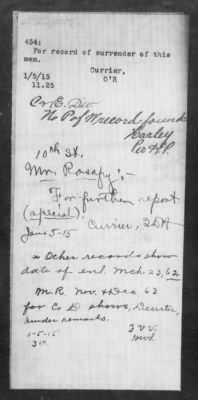 454:
For record of surrender of this
man.
Currier,
1/5/15 O'R
11.25
C. E. Div
No P of W record found
Earley
Per H.P.
10th St.
Mr. Rosafy:-
For further report
(special)
Jan 5-15 Currier, 2 D A
Other records show
date of enl. Mch 23, 62
M.R. Nov. & Dec 63
for Co D shows, Deserter,
under remarks.
1-5-15 3 V V.
3 15